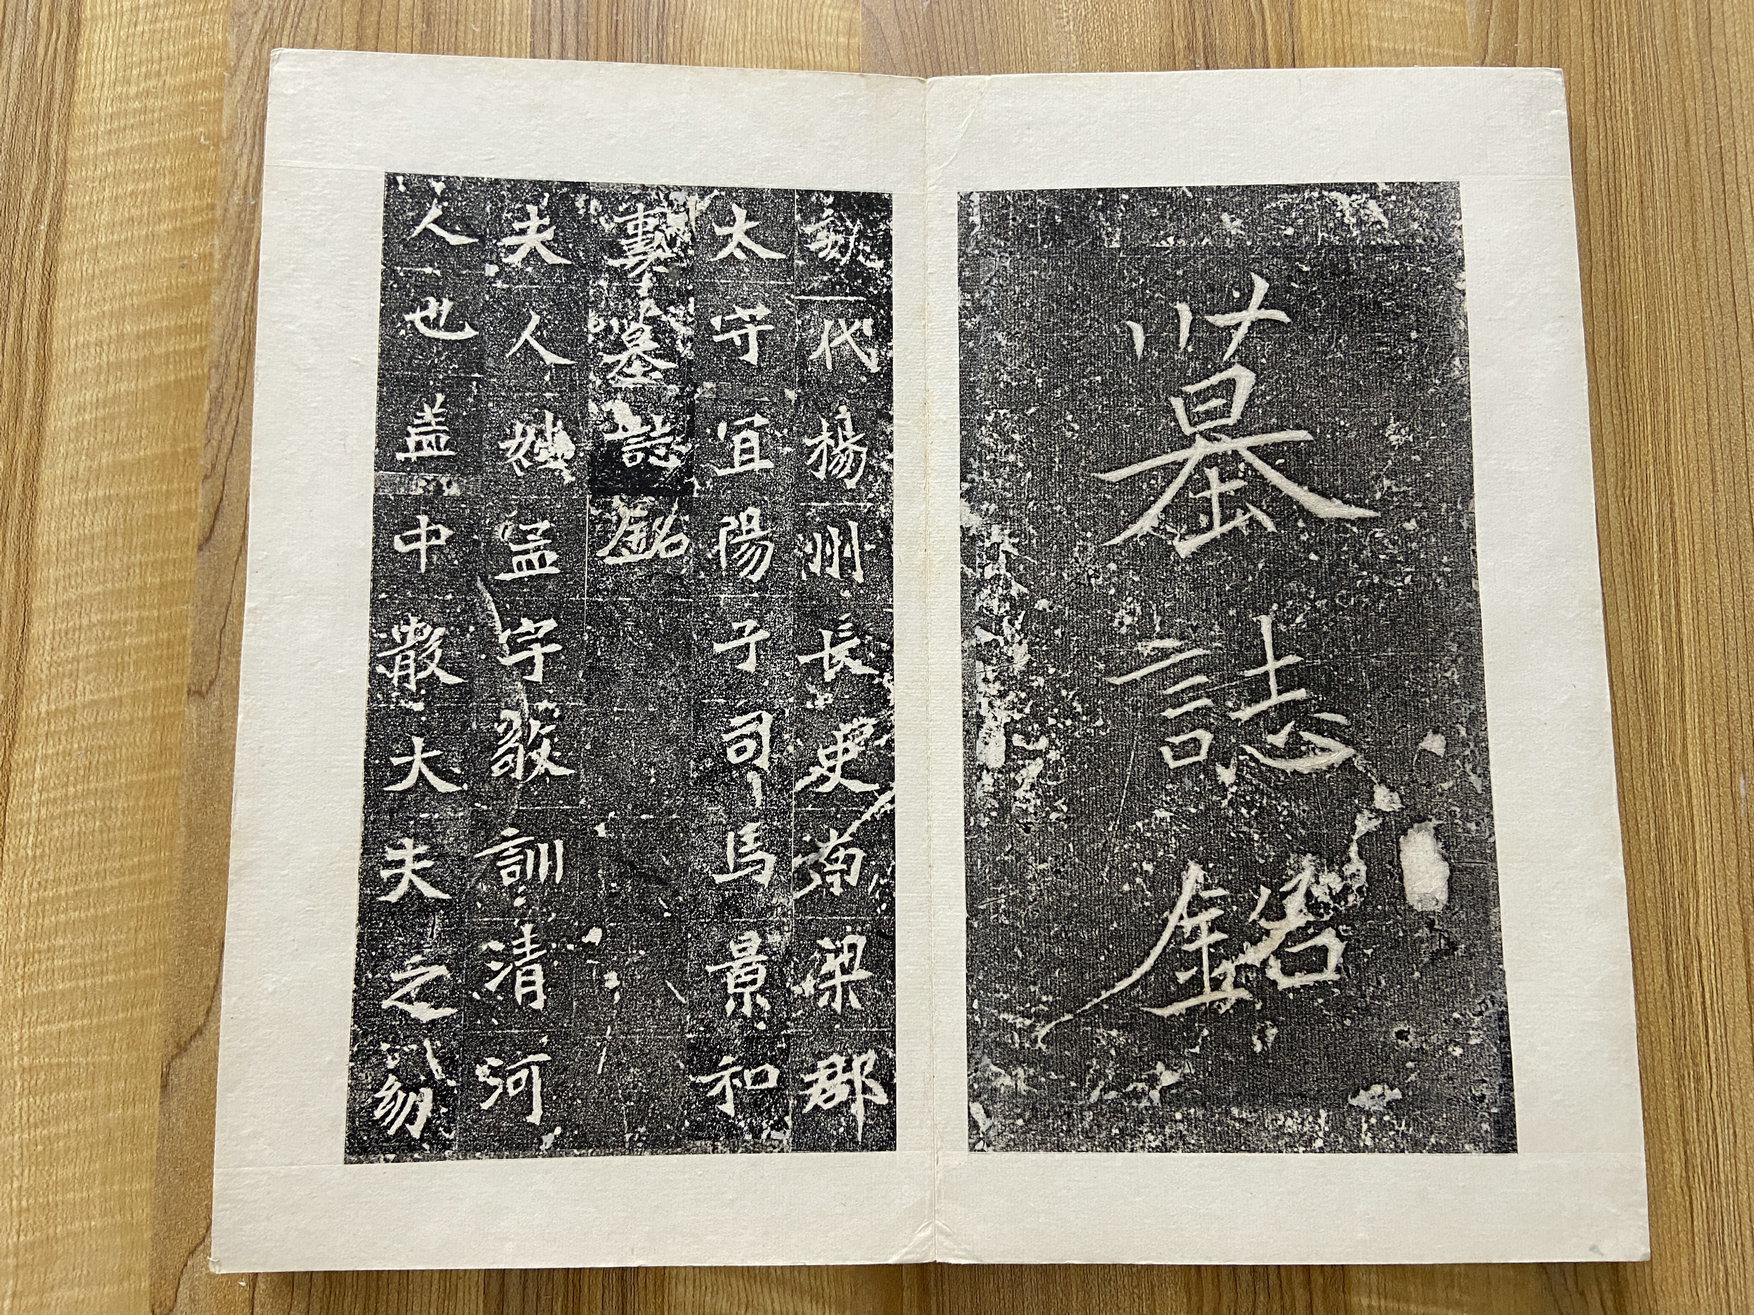 墓誌銘
魏代揚州長史南梁郡
太守宜陽子司馬景和
妻墓誌銘
夫人姓孟字敬訓清河
人也盖中散大夫之幼